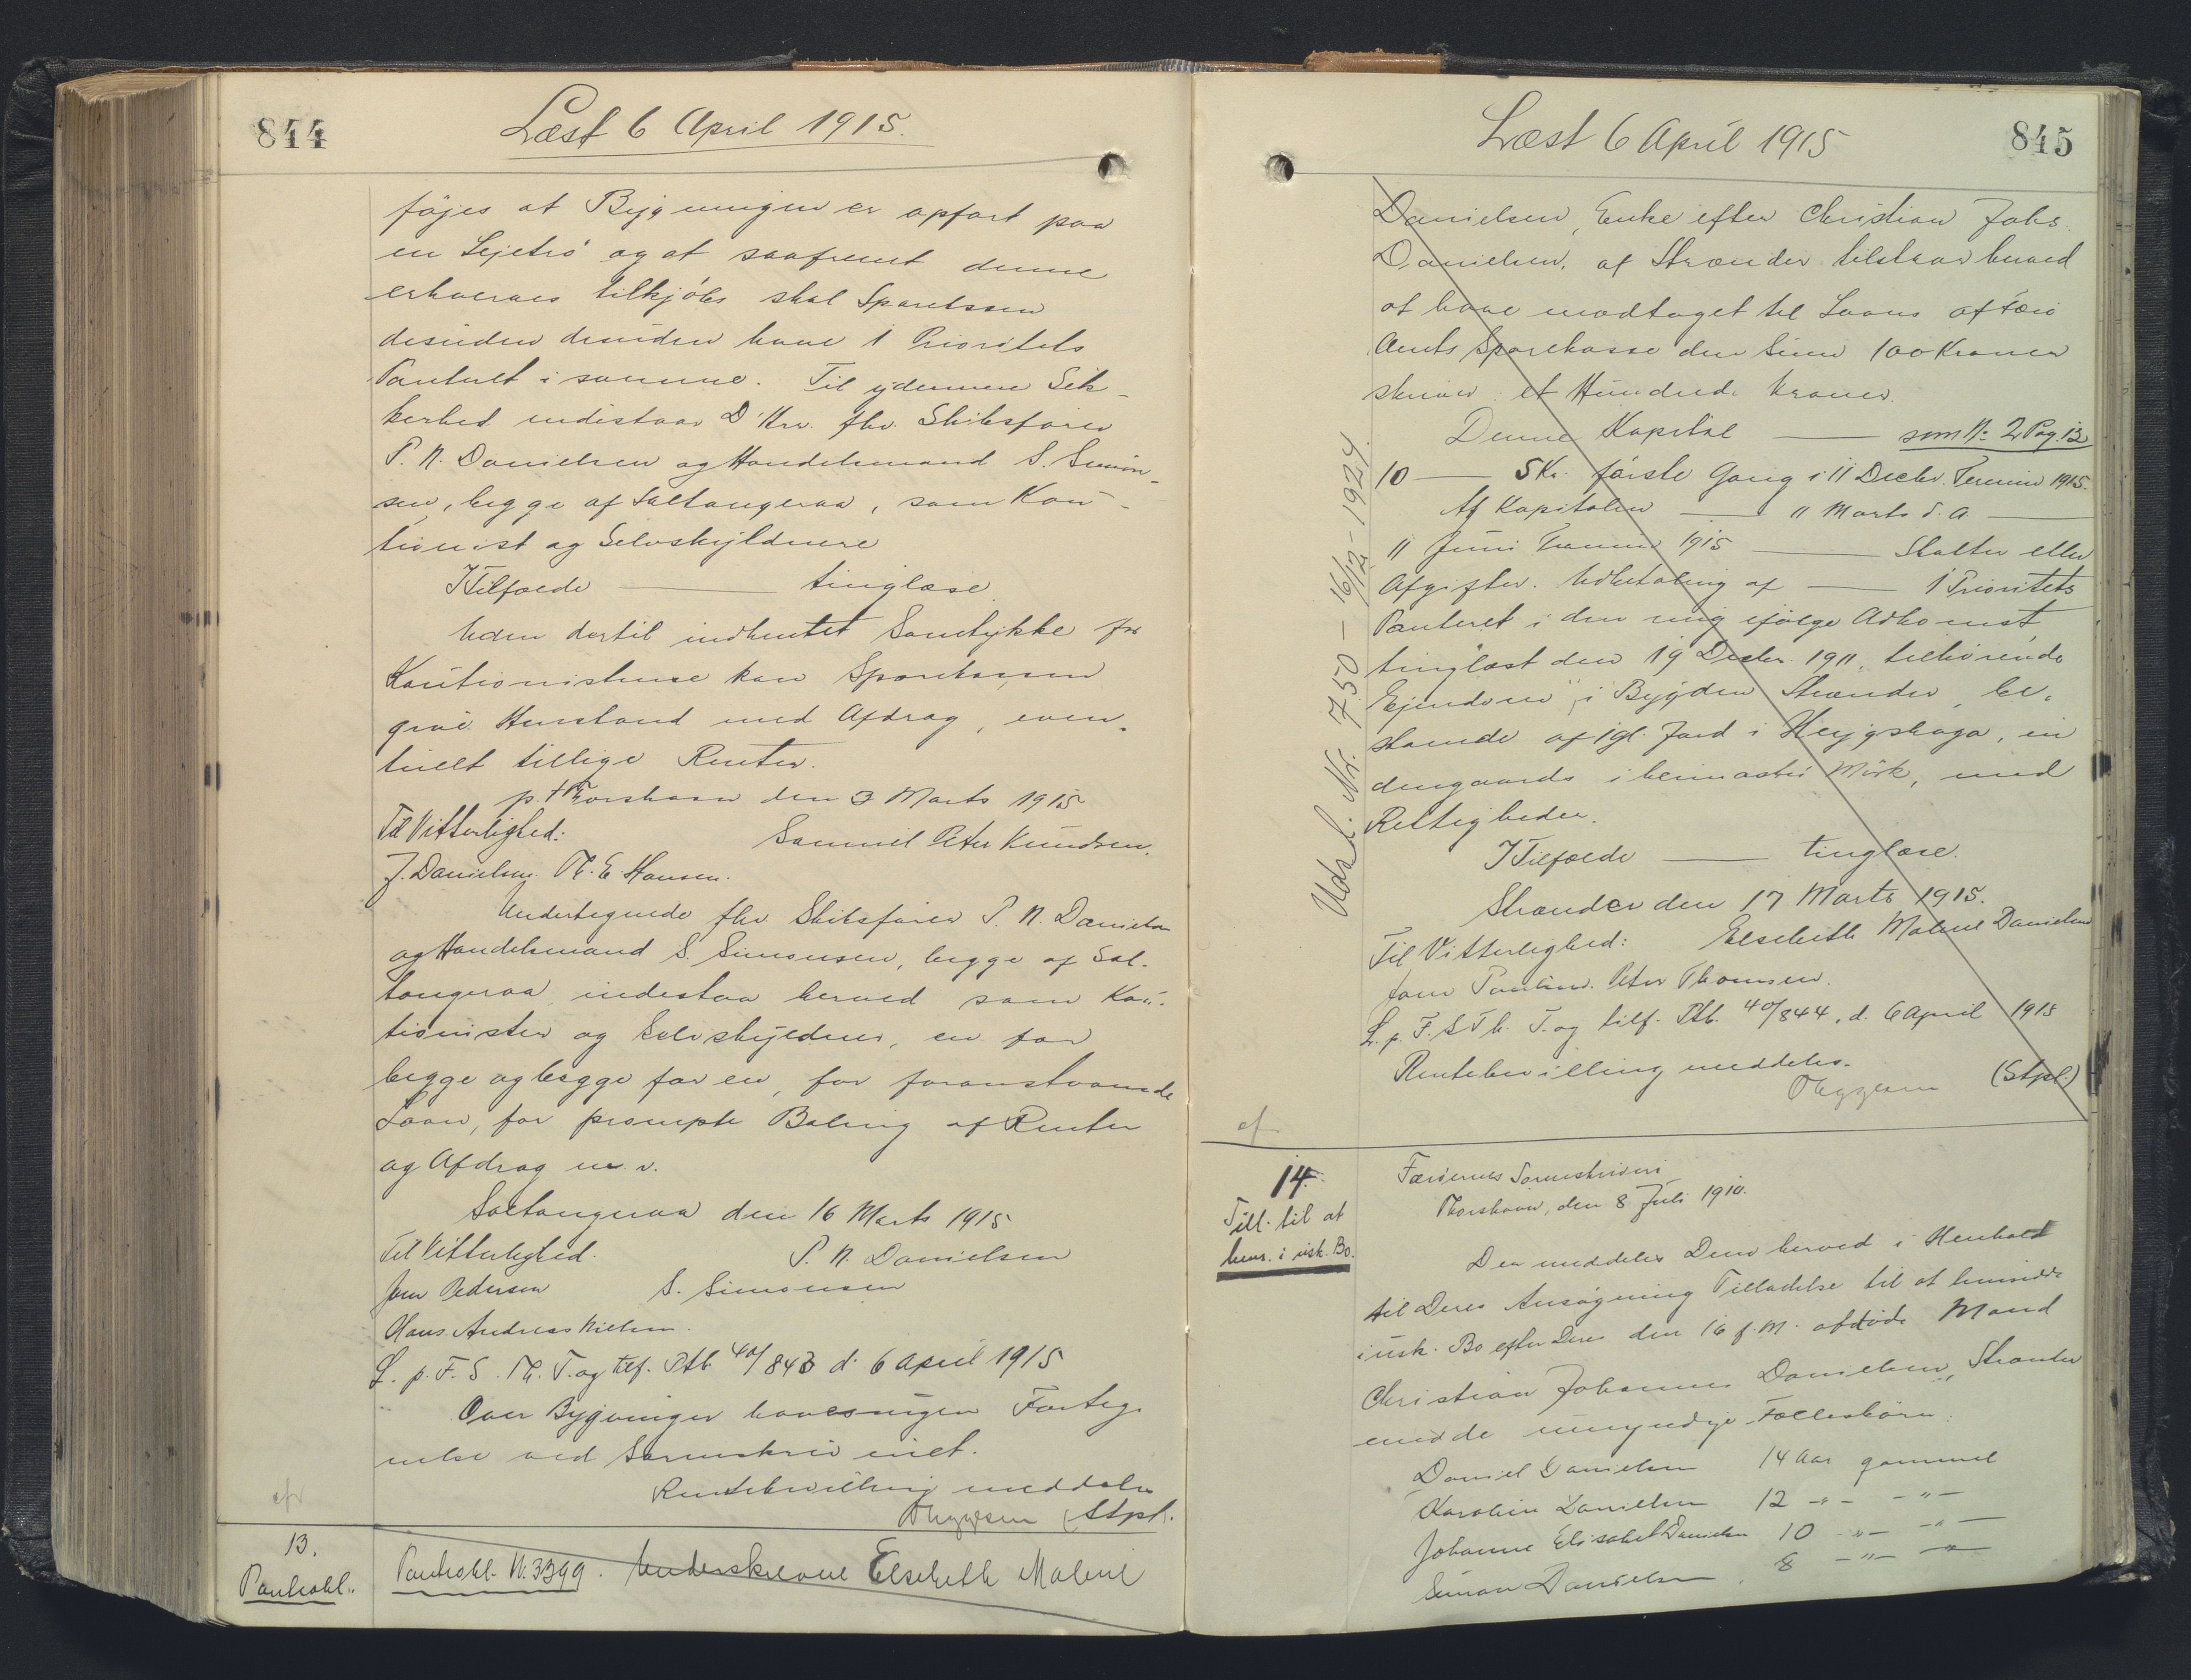 844
Læst 6 April 1915.
føjes at Bygningen er opført paa
en Lejetrø og at saafremt denne
erhverves tilkjøbs skal Sparekassen
desuden desuden have 1 Prioritets
Panteret i samme. Til ydermere Sik-
kerhed indestaar D'Hrr. fhv. Skibsfører
P. N. Danielsen og Handelsmand S. Simon-
sen, begge af Saltangeraa, som Kau-
tionist og Selvskyldnere
I Tilfælde — tinglæse
Uden dertil indhentet Samtykke fra
Kautionisterne kan Sparekassen
give Henstand med Afdrag, even-
tuelt tillige Renter.
p.t. Torshavn den 3 Marts 1915
Til Vitterlighed: Samuel Peter Knudsen.
J. Danielsen. M. E. Hansen.
Undertegnede fhv Skibsfører P. N. Danielsen
og Handelsmand S. Simonsen, begge af Sal-
tangeraa indestaa herved som Kau-
tionister og Selvskyldner, en for
begge og begge for en, for foranstaaende
Laan, for prompte Baling af Renter
og Afdrag m. v.
Saltangeraa den 16 Marts 1915
Til Vitterlighed. P. N. Danielsen
Jens Pedersen S. Simonsen
Hans Andreas Nielsen.
L. p. F. S. Th. T. og tilf. Ptb 40/843 d. 6 April 1915
Over Bygninger haves ingen Forteg-
nelse ved Sorenskriveriet.
Rentebevilling meddeles
(Stpl.
13.
Panteobl.
Panteobl. N. 3399. Underskrevne Elsebeth Malene
845
Læst 6 April 1915
Danielsen, Enke efter Christian Johs.
Danielsen, af Strænder tilstaar herved
at have modtaget til Laans af Færø
Amts Sparekasse den Sum 100 Kroner
skriver: et Hundrede Kroner.
Denne Kapital — som N: 2 Pag. 13
10 — 5 Kr. første Gang i 11 Decbr. Termin 1915.
Af Kapitalen — 11 Marts d. A —
11 Juni Termin 1915 — Skatter eller
Afgifter. Udbetaling af — 1 Prioritets
Panteret i den mig ifølge Adkomst,
tinglæst den 19 Decbr. 1911, tilhørende
Ejendom i Bygden Strænder, be-
staaende af 1 gl. Jord i Heygshaga, in
dengaards i heimasta Mørk, med
Rettigheder.
I Tilfælde — tinglæse.
Strænder den 17 Marts 1915.
Til Vitterlighed: Elsebeth Malene Danielsen
Peter Thomsen.
L. p. F. S Th. T. og tilf. Ptb. 40/844, d. 6 April 1915
Rentebevilling meddeles.
(Stpl.)
Udsl. Nr. 750 - 16/12 - 1924.
14.
Till. til at
hens. i usk. Bo.
Færøernes Sorenskriveri
Thorshavn, den 8 Juli 1910.
Der meddeles Dem herved i Henhold
til Deres Ansøgning Tilladelse til at hensidde
i usk. Bo efter Deres den 16 f. M. afdøde Mand
Christian Johannes Danielsen, Strænder
med de umyndige Fællesbørn:
Daniel Danielsen 14 Aar gammel
Karolin Danielsen 12 -"- -"-
Johanne Elisabet Danielsen 10 -"- -"-
Simon Danielsen 8 -"- -"-